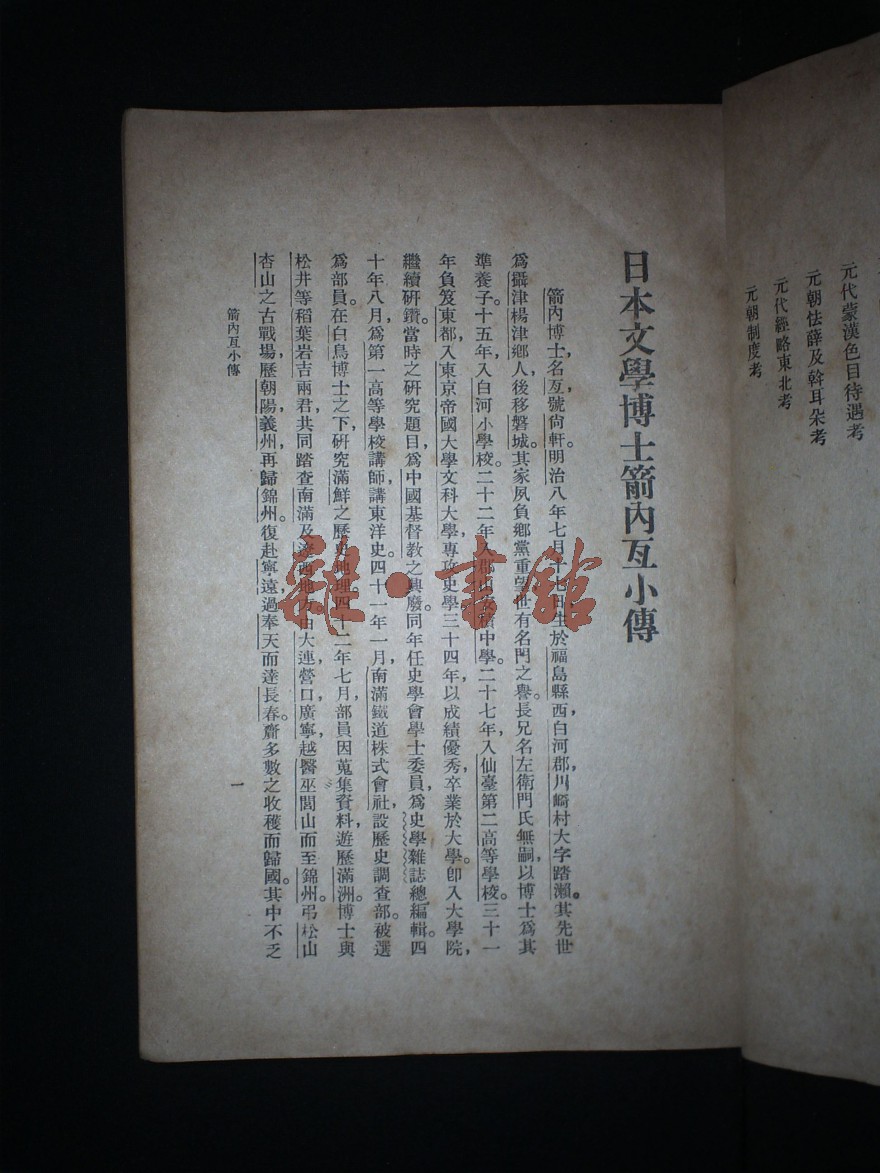 元代蒙漢色目待遇考
元朝怯薛及斡耳朵考
元代經略東北考
元朝制度考
日本文學博士箭內亙小傳
箭內博士,名亙,號尙軒。明治八年七月十七日生於福島縣,西白河郡,川崎村大字踏瀨。其先世
爲攝津楊津鄕人,後移磐城。其家夙負鄕黨重望,世有名門之譽。長兄名左衛門氏無嗣,以博士爲其
準養子。十五年,入白河小學校。二十二年,入郡山安積中學。二十七年,入仙臺第二高等學校。三十一
年負笈東都,入東京帝國大學文科大學,專攻史學。三十四年,以成績優秀卒業於大學。卽入大學院,
繼續硏鑽。當時之硏究題目,爲中國基督敎之興廢。同年任史學會學士委員,爲史學雜誌總編輯。四
十年八月,爲第一高等學校講師,講東洋史。四十一年一月,南滿鐵道株式會社,設歷史調査部。被選
爲部員。在白鳥博士之下,硏究滿鮮之歷史地理。四十二年七月,部員因蒐集資料,遊歷滿洲。博士與
松井等稻葉岩吉兩君,共同踏査南滿及遼西地方。由大連,營口,廣寧,越醫巫閭山而至錦州。弔松山
杏山之古戰場,歷朝陽,義州,再歸錦州。復赴寧遠,過奉天而達長春。齎多數之收穫而歸國。其中不乏
箭內亙小傳
一
雜·書館